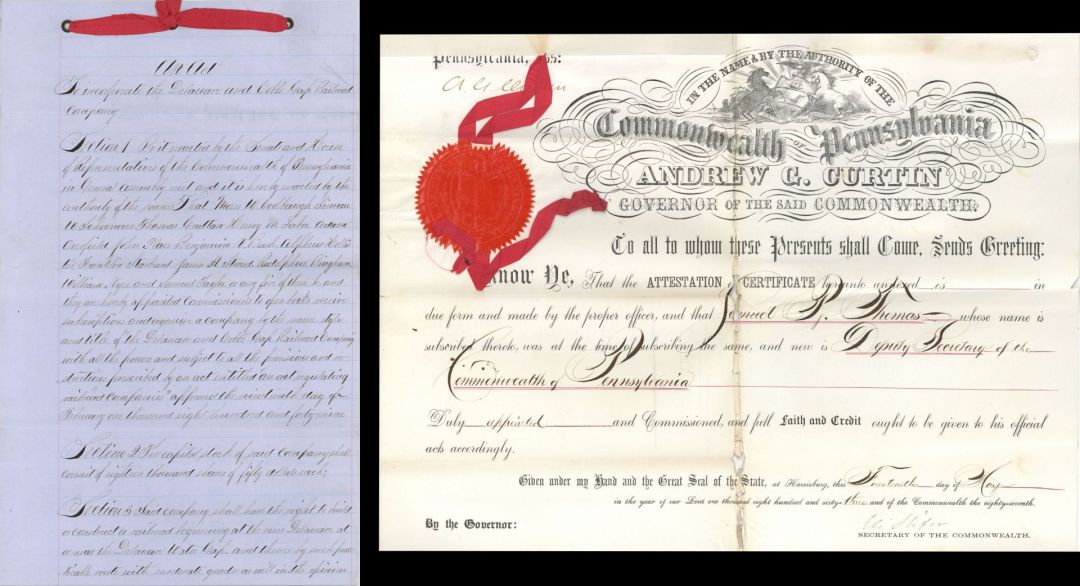 An Act
To incorporate the Delawan and Cobbs Gap Railroad
Company
Section 1 Be it enacted by the Senate and House
of Representatives of the Commonwealth of Pennsylvania
in General Assembly met and it is hereby enacted by the
authority of the same That Moses W Coolbaugh
W Thomas Grattan Henry M Labar
John Place Benjamin V Rush Alpheus
Franklin Starbird James H Stroud Rudolphus Bingham
William Nyce and Samuel Taylor or any five of them be and
they are hereby appointed Commissioners to open books receive
subscriptions and organize a company by the name style
and title of the Delawan and Cobbs Gap Railroad Company
with all the powers and subject to all the provisions and re-
strictions prescribed by an act entitled "an act regulating
railroad companies" approved the nineteenth day of
February one thousand eight hundred and forty nine
Section 2 The capital stock of said Company shall
consist of eighteen thousand shares of fifty dollars each
Section 3 Said company shall have the right to build
construct a railroad beginning at the river Delawan at
or near the Delawan Water Gap and thence by such prac-
ticable route with moderate grades as will in the opinion
Pennsylvania, ss:
IN THE NAME & BY THE AUTHORITY OF THE
Commonwealth OF Pennsylvania
ANDREW G. CURTIN
GOVERNOR OF THE SAID COMMONWEALTH.
To all to whom these Presents shall Come, Sends Greeting:
Know Ye, That the ATTESTATION CERTIFICATE hereunto annexed is in
due form and made by the proper officer, and that Samuel B. Thomas whose name is
subscribed thereto, was at the time of subscribing the same, and now is Deputy Secretary of the
Commonwealth of Pennsylvania
Duly appointed and Commissioned, and full Faith and Credit ought to be given to his official
acts accordingly.
Given under my Hand and the Great Seal of the State, at Harrisburg, this Fourteenth day of May
in the year of our Lord one thousand eight hundred and sixty-three and of the Commonwealth the eighty-seventh.
By the Governor:
Eli Slifer
SECRETARY OF THE COMMONWEALTH.